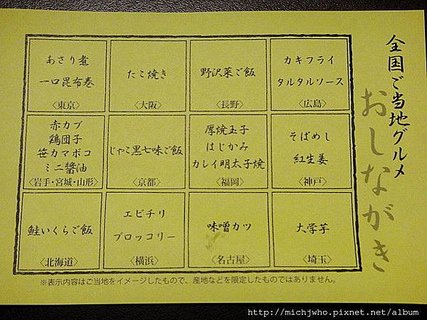 全国ご当地グルメ
おしながき
あさり煮
一口昆布巻
〈東京〉
たこ焼き
〈大阪〉
野沢菜ご飯
〈長野〉
カキフライ
タルタルソース
〈広島〉
赤カブ
鶏団子
笹カマボコ
ミニ醤油
〈岩手・宮城・山形〉
じゃこ黒七味ご飯
〈京都〉
厚焼玉子
はじかみ
カレイ明太子焼
〈福岡〉
そばめし
紅生姜
〈神戸〉
鮭いくらご飯
〈北海道〉
エビチリ
ブロッコリー
〈横浜〉
味噌カツ
〈名古屋〉
大学芋
〈埼玉〉
※表示内容はご当地をイメージしたもので、産地などを限定したものではありません。
http://michjwho.pixnet.net/album